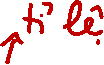 tỉ lệ.